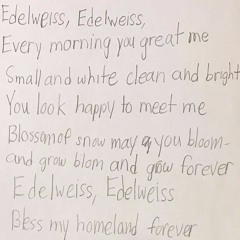 Edelweiss, Edelweiss,
Every morning you great me
Small and white clean and bright
You look happy to meet me
Blossom of snow may you bloom-
and grow blom and grow forever
Edelweiss, Edelweiss
Bless my homeland forever